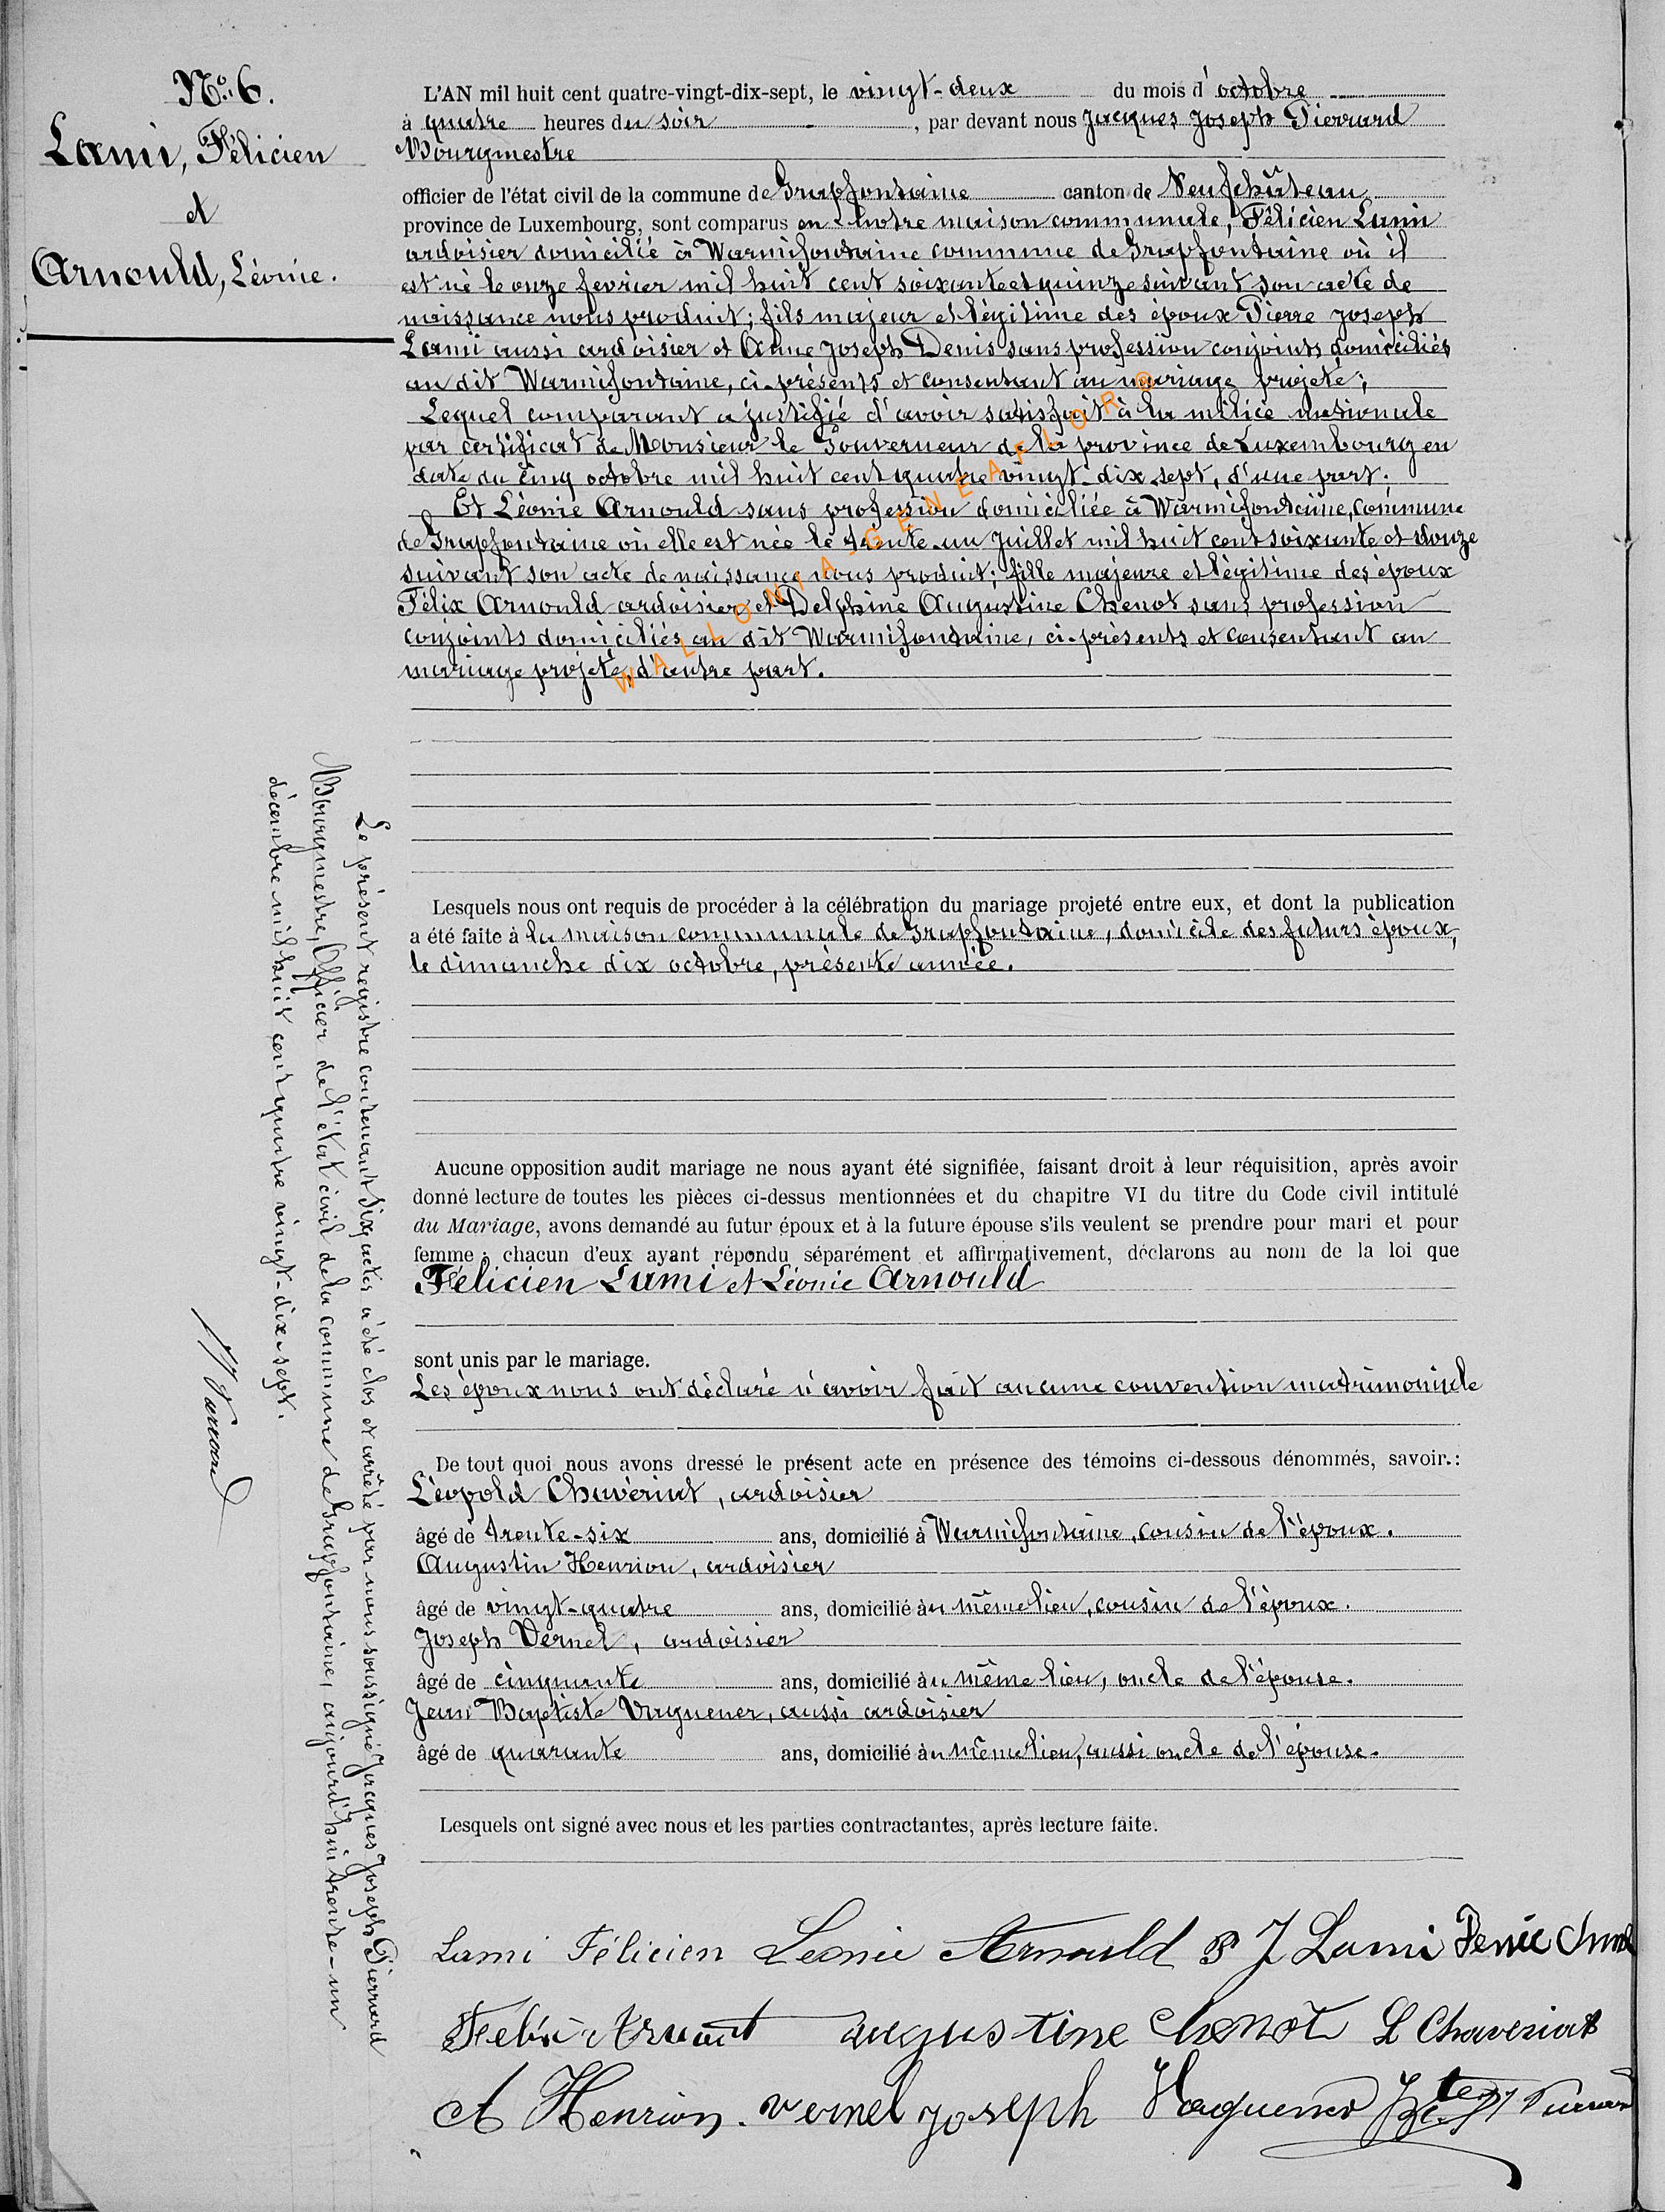 No. 6.
Lami, Félicien
et
Arnould, Léonie.
L'AN mil huit cent quatre-vingt-dix-sept, le vingt-deux du mois d'octobre
à quatre heures du soir, par devant nous Jacques Joseph Pierrard
Bourgmestre
officier de l'état civil de la commune de Grapfontaine canton de Neufchâteau
province de Luxembourg, sont comparus en notre maison communale, Félicien Lami
ardoisier domicilié à Warmifontaine commune de Grapfontaine où il
est né le onze fevrier mil huit cent soixante et quinze suivant son acte de
naissance nous produit; fils majeur et légitime des époux Pierre Joseph
Lami aussi ardoisier et Anne Joseph Denis sans profession conjoints domiciliés
au dit Warmifontaine, ci-présents et consentant au mariage projeté;
Lequel comparant a justifié d'avoir satisfait à la milice nationale
par certificat de Monsieur le Gouverneur de la province de Luxembourg en
date du cinq octobre mil huit cent quatre vingt-dix sept, d'une part.
Et Léonie Arnould sans profession domiciliée à Warmifontaine, commune
de Grapfontaine où elle est née le trente-un Juillet mil huit cent soixante et douze
suivant son acte de naissance nous produit; fille majeure et légitime des époux
Félix Arnould ardoisier et Delphine Augustine Chenot sans profession
conjoints domiciliés au dit Warmifontaine, ci-présents et consentant au
mariage projeté, d'autre part.
WALLONIA-GENEAFLOR©
Lesquels nous ont requis de procéder à la célébration du mariage projeté entre eux, et dont la publication
a été faite à la maison communale de Grapfontaine, domicile des futurs époux,
le dimanche dix octobre, présente année.
Aucune opposition audit mariage ne nous ayant été signifiée, faisant droit à leur réquisition, après avoir
donné lecture de toutes les pièces ci-dessus mentionnées et du chapitre VI du titre du Code civil intitulé
du Mariage, avons demandé au futur époux et à la future épouse s'ils veulent se prendre pour mari et pour
femme; chacun d'eux ayant répondu séparément et affirmativement, déclarons au nom de la loi que
Félicien Lami et Léonie Arnould
sont unis par le mariage.
Les époux nous ont déclaré n'avoir fait aucune convention matrimoniale
De tout quoi nous avons dressé le présent acte en présence des témoins ci-dessous dénommés, savoir.:
Léopold Chavériat, ardoisier
âgé de trente-six ans, domicilié à Warmifontaine, cousin de l'époux.
Augustin Henrion, ardoisier
âgé de vingt-quatre ans, domicilié au même lieu, cousin de l'époux.
Joseph Vernel, ardoisier
âgé de cinquante ans, domicilié au même lieu, oncle de l'épouse.
Jean Baptiste Vaguener, aussi ardoisier
âgé de quarante ans, domicilié au même lieu, aussi oncle de l'épouse.
Lesquels ont signé avec nous et les parties contractantes, après lecture faite.
Lami Félicien Léonie Arnould P J Lami
Félix Arnout augustine Chenot L Chaveriat
A Henrion. vernel joseph Vaguener Jbte Pierrard
Le présent registre contenant six actes a été clos et arrêté par nous soussigné Jacques Joseph Pierrard
Bourgmestre, Officier de l'état civil de la commune de Grapfontaine, aujourd'hui trente-un
décembre mil huit cent quatre vingt-dix-sept.
Pierrard